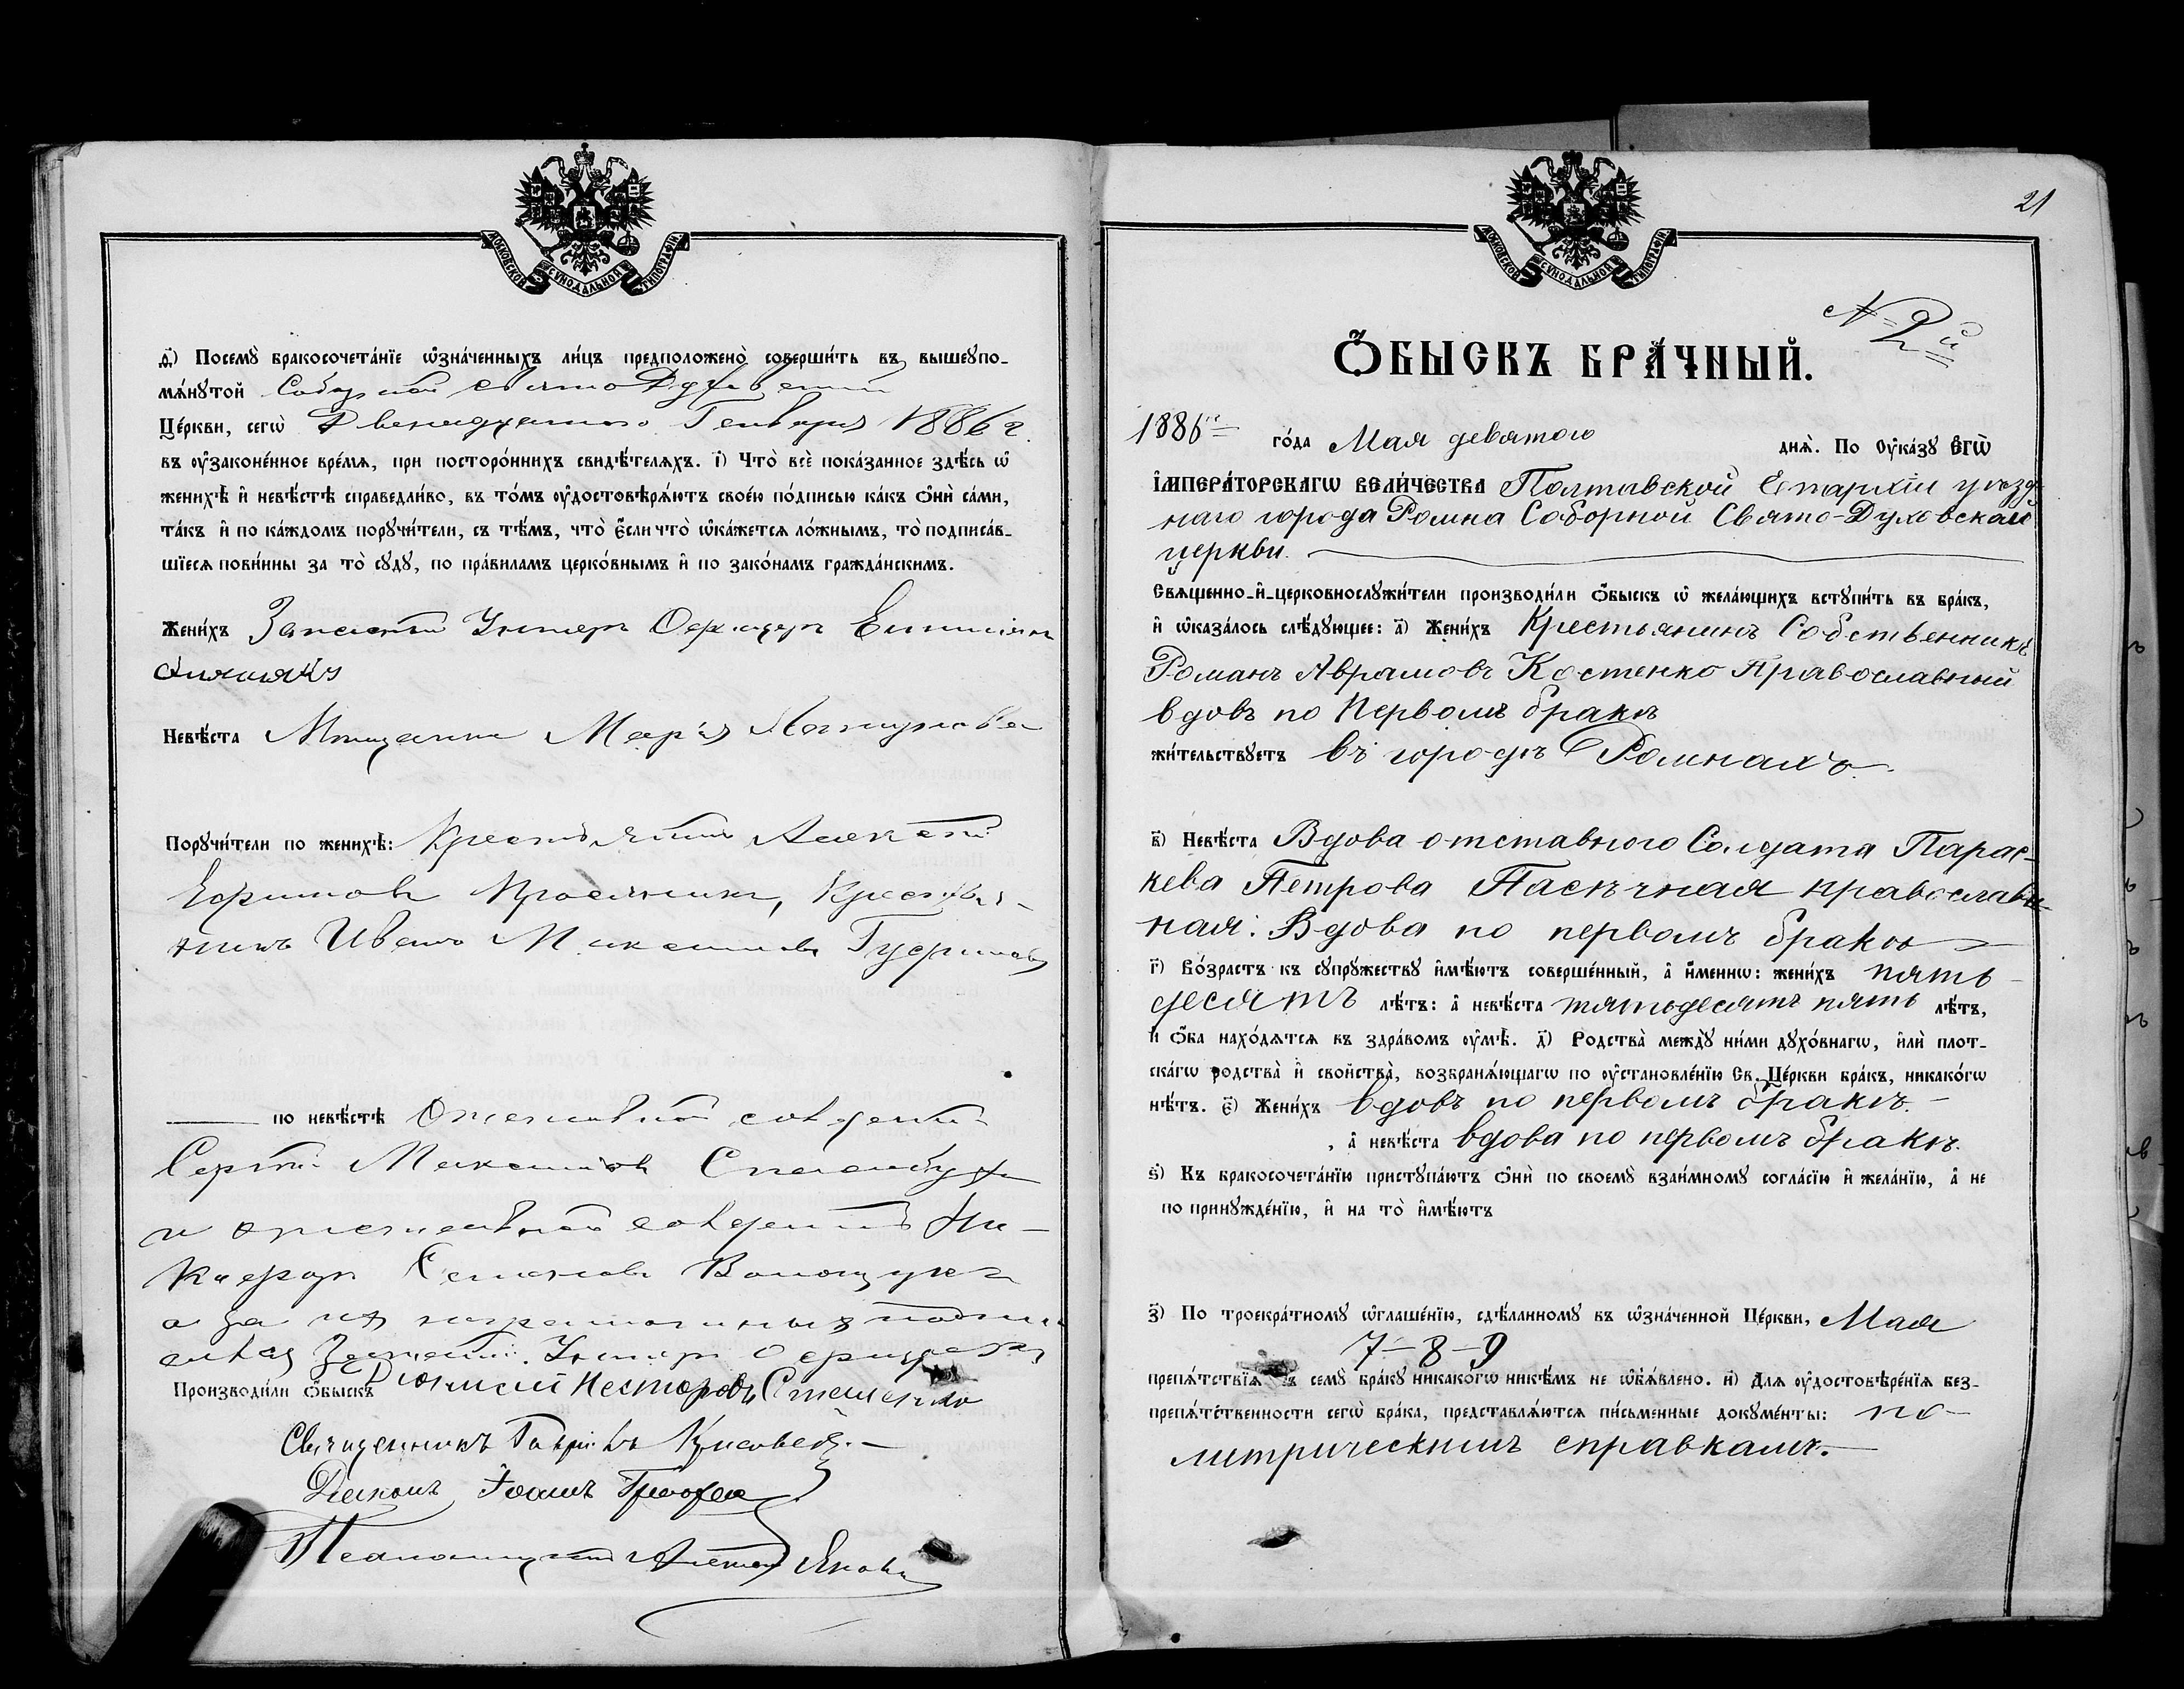 МОСКОВСКОЙ СУНОДАЛЬНОЙ ТИПОГРАФІИ.
д҃і) Посемꙋ̀ бракосочета́нїе ѡ҆зна́ченныхъ ли́цъ предположено̀ соверши́ть въ вышеꙋпо-
мѧ́нꙋтой Соборной Свято Духовской
Це́ркви, сегѡ̀ Двенадцатого Генваря 1886 г.
въ ᲂу҆законе́нное вре́мѧ, при посторо́ннихъ свидѣ́телѧхъ. і҃) Что̀ всѐ пока́занное здѣ́сь ѡ҆
женихѣ̀ и҆ невѣ́стѣ справедли́во, въ то́мъ ᲂу҆достовѣрѧ́ютъ свое́ю по́дписью ка́къ ѻ҆нѝ са́ми,
та́къ и҆ по ка́ждомъ порꙋчи́тели, съ тѣ́мъ, что̀ є҆́сли что̀ ѡ҆ка́жетсѧ ло́жнымъ, то̀ подписа́в-
шїесѧ пови́нны за то̀ сꙋдꙋ̀, по пра́виламъ церко́внымъ и҆ по зако́намъ гражда́нскимъ.
Жени́хъ Запасный Унтеръ Офицеръ
Невѣ́ста Мещанка Марія
Порꙋчи́тели по женихѣ̀: Крестьянинъ Алексей
Ефимовъ Крестья-
нинъ Иванъ Максимовъ
по невѣ́стѣ Отставной солдатъ
Сергей Максимовъ
и отставной солдатъ Ни-
кифоръ Семеновъ
а за их неграмотных подпи
сался Запасный Унтеръ Офицеръ
Производи́ли ѻ҆́быскъ Несторовъ Степаненко
Священникъ Гавріилъ
Діаконъ Іоаннъ
Псаломщикъ Алексей
21
МОСКОВСКОЙ СУНОДАЛЬНОЙ ТИПОГРАФІИ.
№ 2й
Ѻ҆́БЫСКЪ БРА́ЧНЫЙ.
1886го го́да Мая девятого днѧ̀. По Оу҆ка́зꙋ Є҆гѡ̀
І҆мпера́торскагѡ Вели́чества Полтавской Епархіи уезд
наго города Ромна Соборной Свято-Духовской
церкви.
Свѧще́нно-и҆-церковнослꙋжи́тели производи́ли ѻ҆́быскъ ѡ҆ жела́ющихъ встꙋпи́ть въ бра́къ,
и҆ ѡ҆каза́лось слѣ́дꙋющее: а҃) Жени́хъ Крестьянинъ Собственникъ
Романъ Аврамовъ Костенко Православный
вдовъ по первомъ бракѣ
жи́тельствꙋетъ въ городѣ Ромнахъ.
в҃) Невѣ́ста Вдова отставного Солдата Парас-
кева Петрова Пасечная православ
ная: Вдова по первомъ бракѣ
г҃) Во́зрастъ къ сꙋпрꙋ́жествꙋ и҆мѣ́ютъ соверше́нный, а҆ и҆́меннѡ: жени́хъ пять-
десятъ лѣ́тъ: а҆ невѣ́ста пятьдесятъ пять лѣ́тъ,
и҆ ѻ҆́ба нахо́дѧтсѧ въ здра́вомъ ᲂу҆мѣ̀. д҃) Родства̀ междꙋ̀ ни́ми дꙋхо́внагѡ, и҆лѝ плот-
ска́гѡ родства̀ и҆ свойства̀, возбранѧ́ющагѡ по ᲂу҆становле́нїю Св. Це́ркви бра́къ, никако́гѡ
нѣ́тъ. є҃) Жени́хъ вдовъ по первомъ бракѣ.
, а҆ невѣ́ста вдова по первомъ бракѣ.
ѕ҃) Къ бракосочета́нїю пристꙋпа́ютъ ѻ҆нѝ по своемꙋ̀ взаи́мномꙋ согла́сїю и҆ жела́нїю, а҆ не
по принꙋжде́нїю, и҆ на то̀ и҆мѣ́ютъ
з҃) По троекра́тномꙋ ѡ҆глаше́нїю, сдѣ́ланномꙋ въ ѡ҆зна́ченной Це́ркви, Мая
7-8-9
препѧ́тствїѧ къ семꙋ̀ бра́кꙋ никако́гѡ никѣ́мъ не ѡ҆бъѧ́влено. и҃) Длѧ ᲂу҆достовѣре́нїѧ без-
препѧ́тственности сегѡ̀ бра́ка, представлѧ́ютсѧ пи́сьменные докꙋме́нты: по-
митрическимъ справкамъ.